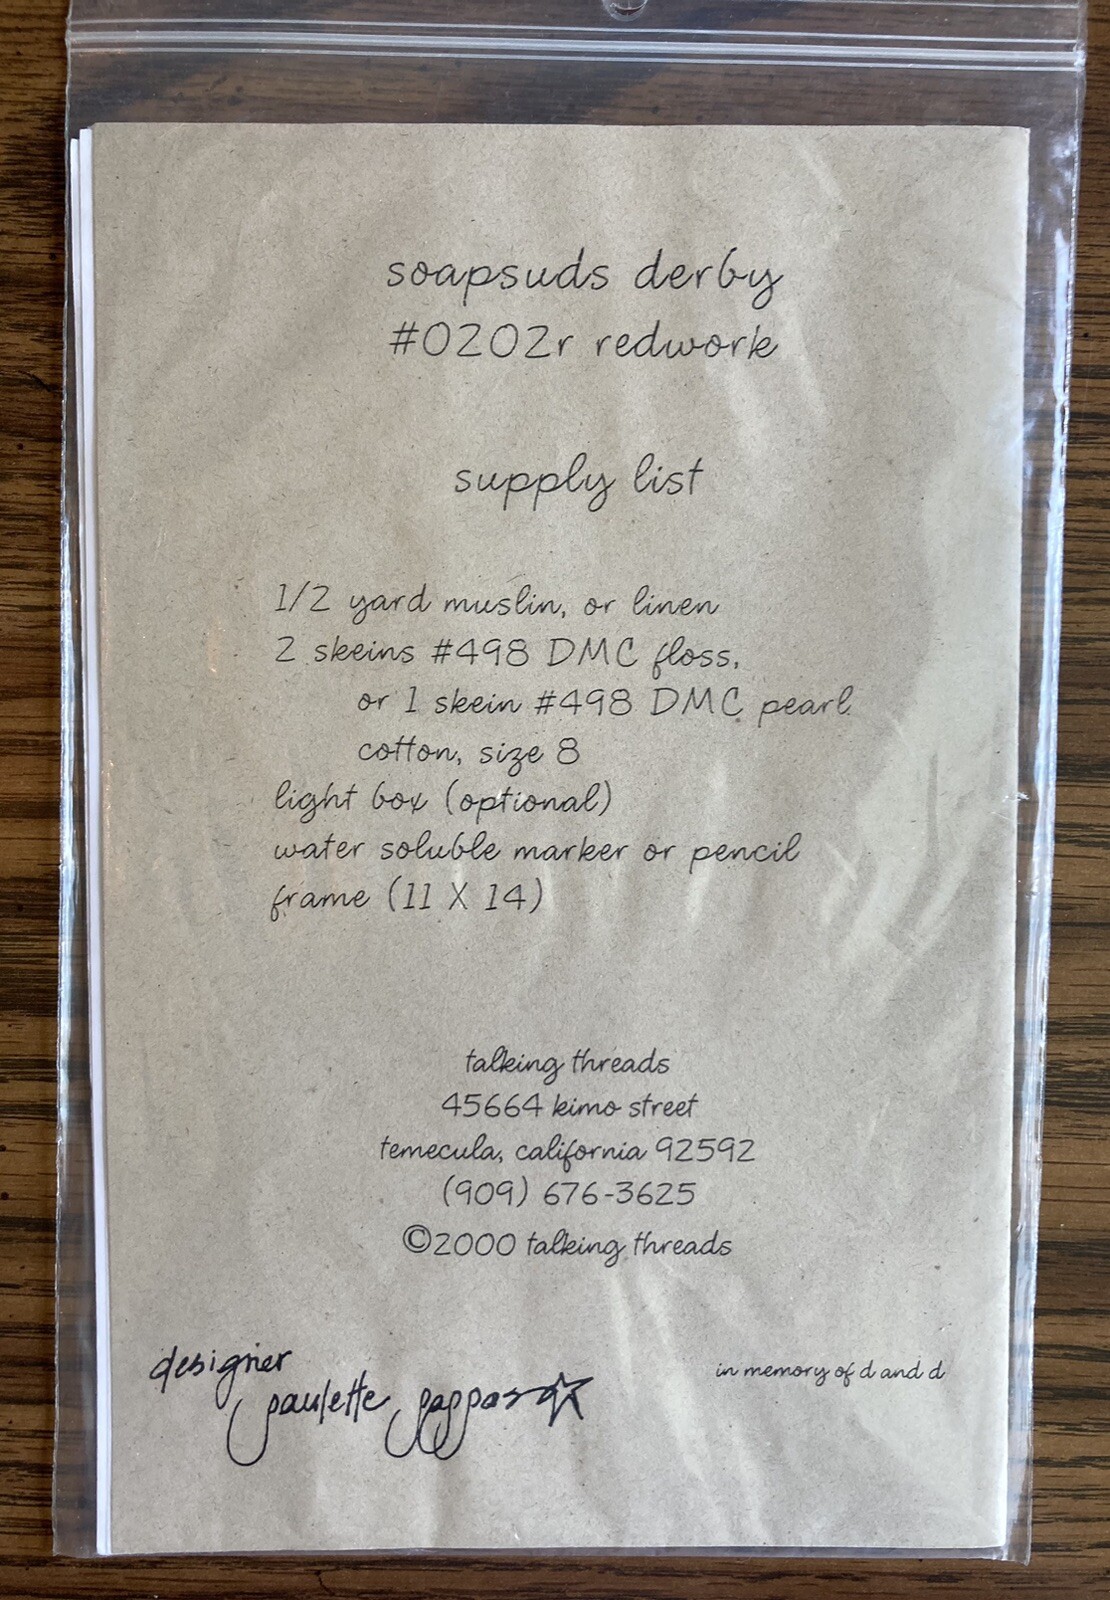 soapsuds derby
#0202r redwork
supply list
1/2 yard muslin, or linen
2 skeins #498 DMC floss,
or 1 skein #498 DMC pearl
cotton, size 8
light box (optional)
water soluble marker or pencil
frame (11 X 14)
talking threads
45664 kimo street
temecula, california 92592
(909) 676-3625
©2000 talking threads
designer
paulette pappas
in memory of d and d